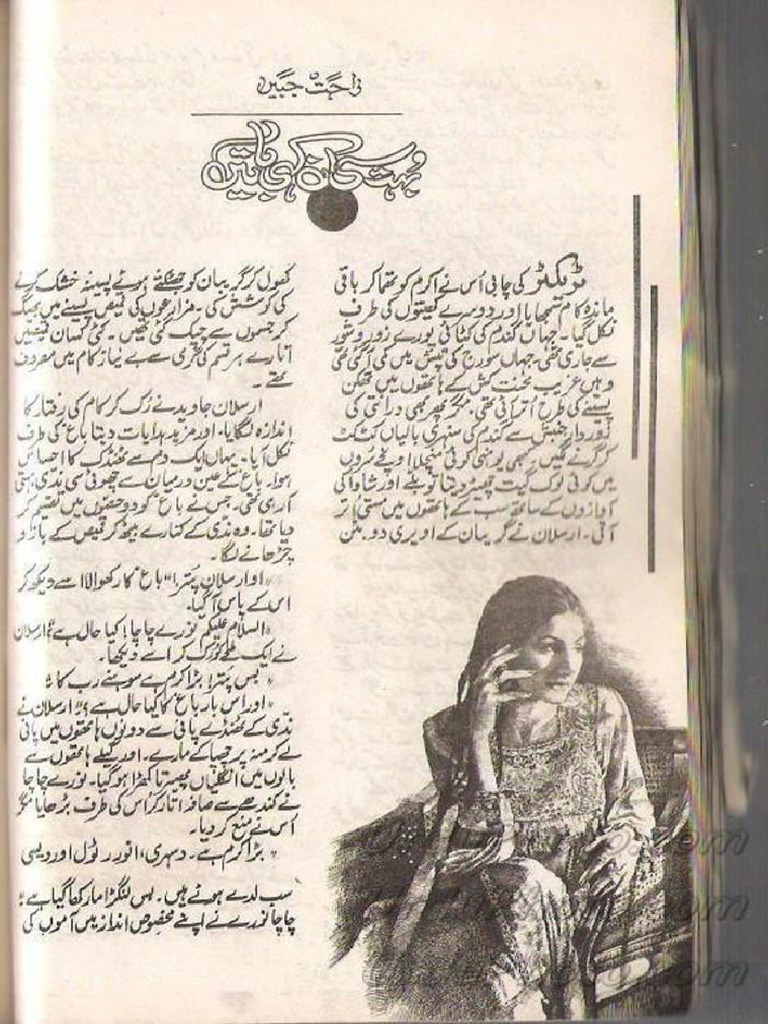 راحَت جبین
وہ بستی کہ ہی باتیں
ٹریکٹر کی چابی اُس نے اکرم کو تھما کر باقی
ماندہ کام سمجھایا اور دوسرے کھیتوں کی طرف
نکل گیا۔ جہاں گندم کی کٹائی پورے زور و شور
سے جاری تھی۔ جہاں سورج کی تپش میں کمی آ گئی تھی
وہیں غریب محنت کش کے ہاتھوں میں تھکن
پسینے کی طرح اُتر آئی تھی۔ مگر پھر بھی درانتی کی
زور دار جنبش سے گندم کی سنہری بالیاں کٹ کٹ
کر گرنے لگیں کبھی یونہی کوئی منچلا اونچے سُروں
میں کوئی لوک گیت چھیڑ دیتا تو بلے اور شاوا کی
آوازوں کے ساتھ سب کے ہاتھوں میں مستی اتر
آتی۔ ارسلان نے گریبان کے اوپری دو بٹن
کھول کر گریبان کو جھٹکتے ہوئے پسینہ خشک کرنے
کی کوشش کی۔ مزارعوں کی قمیص پسینے میں بھیگ
کر جسموں سے چپک گئی تھیں۔ کئی کسان قمیصیں
اتارے ہر قسم کی گرمی سے بے نیاز کام میں مصروف
تھے۔
ارسلان جاوید نے رُک کر کام کی رفتار کا
اندازہ لگایا۔ اور مزید ہدایات دیتا باغ کی طرف
نکل آیا۔ یہاں ایک دم سے ٹھنڈک کا احساس
ہوا۔ باغ کے عین درمیان سے چھوٹی سی ندی بہتی
آ رہی تھی۔ جس نے باغ کو دو حصّوں میں تقسیم کر
دیا تھا۔ وہ ندی کے کنارے بیٹھ کر قمیص کے بازو
چڑھانے لگا۔
"او ارسلان پُترا" باغ کا رکھوالا اسے دیکھ کر
اس کے پاس آ گیا۔
"السّلام علیکم نورے چاچا! کیا حال ہے؟" ارسلان
نے ایک لمحے کو رُک کر اسے دیکھا۔
"بس پُترا بڑا کرم ہے سوہنے رب کا"
"اور اس بار باغ کا کیا حال ہے؟" ارسلان نے
ندی کے ٹھنڈے پانی سے دونوں ہاتھوں میں پانی
لے کر منہ پر چھپاکے مارے۔ اور گیلے ہاتھوں سے
بالوں میں انگلیاں پھیرتا کھڑا ہو گیا۔ نورے چاچا
نے کندھے سے صافہ اتار کر اس کی طرف بڑھایا مگر
اس نے منع کر دیا۔
"بڑا کرم ہے۔ دسہری، انور رٹول اور دیسی
سب لدے ہوئے ہیں۔ بس لنگڑا مار کھا گیا ہے"
چاچا نورے نے اپنے مخصوص انداز میں آموں کی